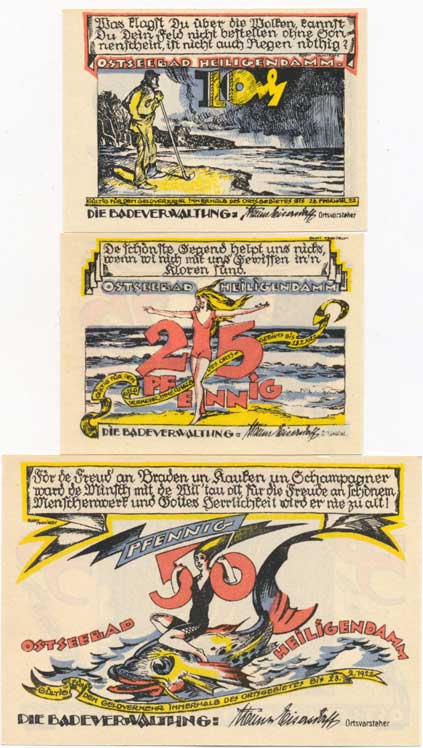 Was klagst Du über die Wolken, kannst
Du Dein Feld nicht bestellen ohne Son-
nenschein, ist nicht auch Regen nöthig?
OSTSEEBAD HEILIGENDAMM.
10
GÜLTIG FÜR DEN GELDVERKEHR INNERHALB DES ORTSGEBIETES BIS 28. FEBRUAR 22
DIE BADEVERWALTUNG:
Ortsvorsteher
De schönste Gegend helpt uns nicks,
wenn wi nich mit uns Gewissen in'n
Kloren sünd.
OSTSEEBAD HEILIGENDAMM
25
PFENNIG
GÜLTIG FÜR DEN GELD
VERKEHR INNERHALB DES ORTS
GEBIETES BIS
DIE BADEVERWALTUNG:
För de Freud an Braden un Kauken un Schampagner
ward de Minsch mit de Wil' tau olt für die Freude an schönem
Menschenwerk und Gottes Herrlichkeit wird er nie zu alt!
PFENNIG
50
OSTSEEBAD
HEILIGENDAMM
GÜLTIG FÜR DEN GELDVERKEHR INNERHALB DES ORTSGEBIETES BIS 28. 2. 1922
DIE BADEVERWALTUNG:
Ortsvorsteher